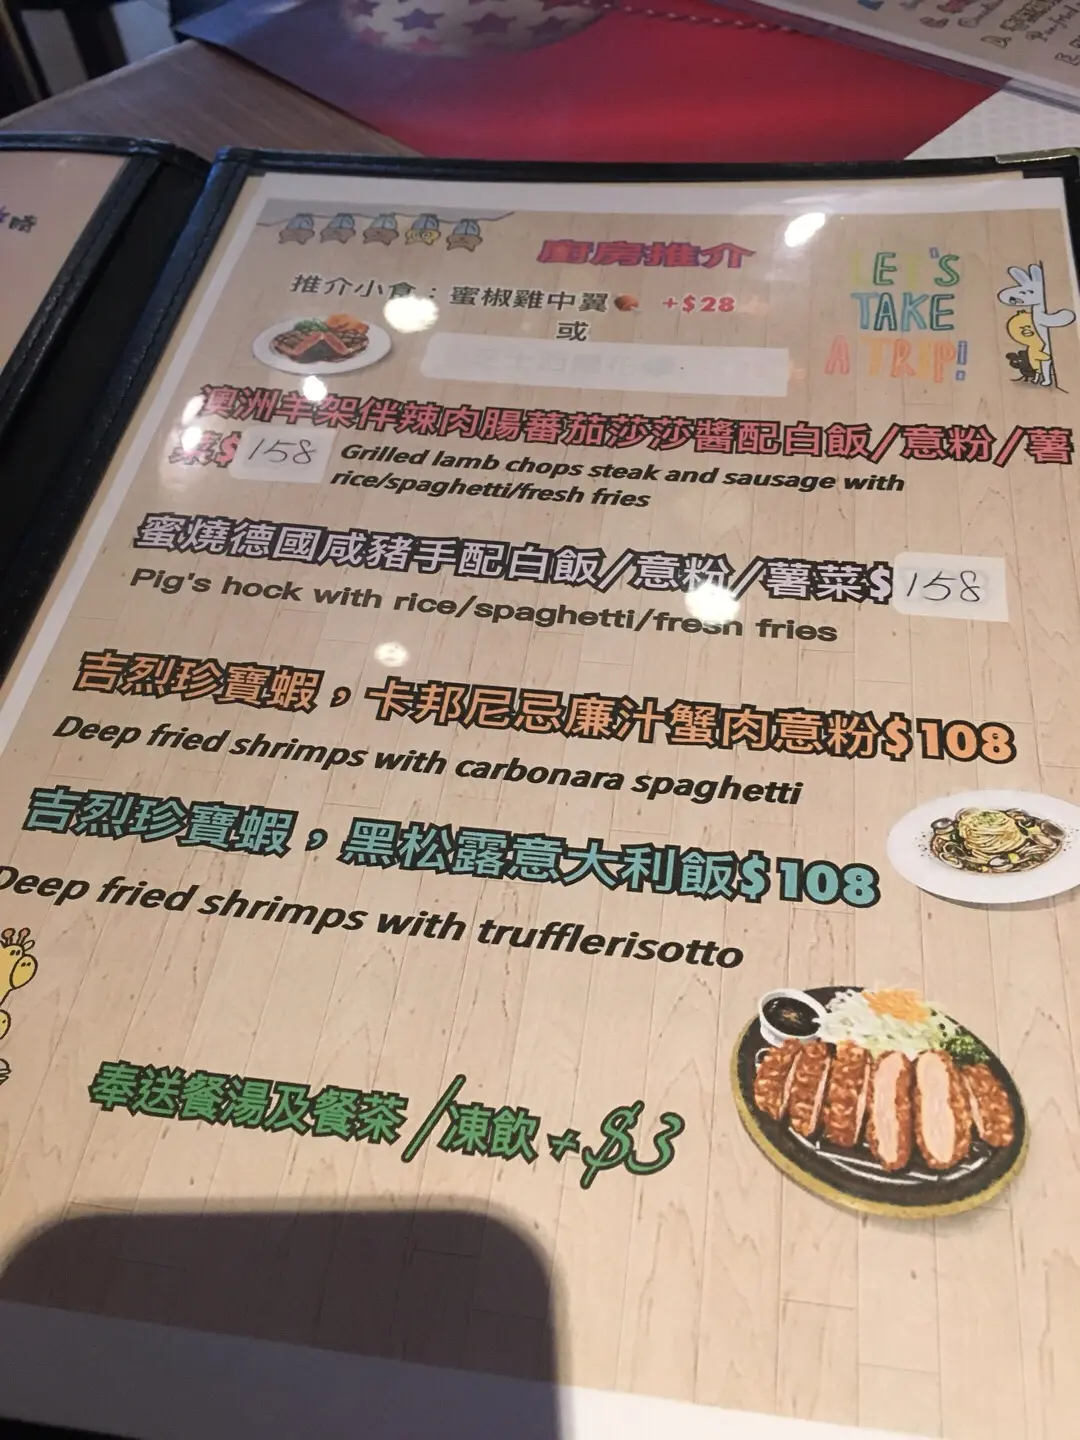 廚房推介
推介小食：蜜椒雞中翼 +$28
或
LET'S
TAKE
A TRIP!
澳洲羊架伴辣肉腸蕃茄莎莎醬配白飯/意粉/薯
菜$ 158
Grilled lamb chops steak and sausage with
rice/spaghetti/fresh fries
蜜燒德國咸豬手配白飯/意粉/薯菜$ 158
Pig's hock with rice/spaghetti/fresh fries
吉烈珍寶蝦，卡邦尼忌廉汁蟹肉意粉$108
Deep fried shrimps with carbonara spaghetti
吉烈珍寶蝦，黑松露意大利飯$108
Deep fried shrimps with trufflerisotto
奉送餐湯及餐茶/凍飲+$3